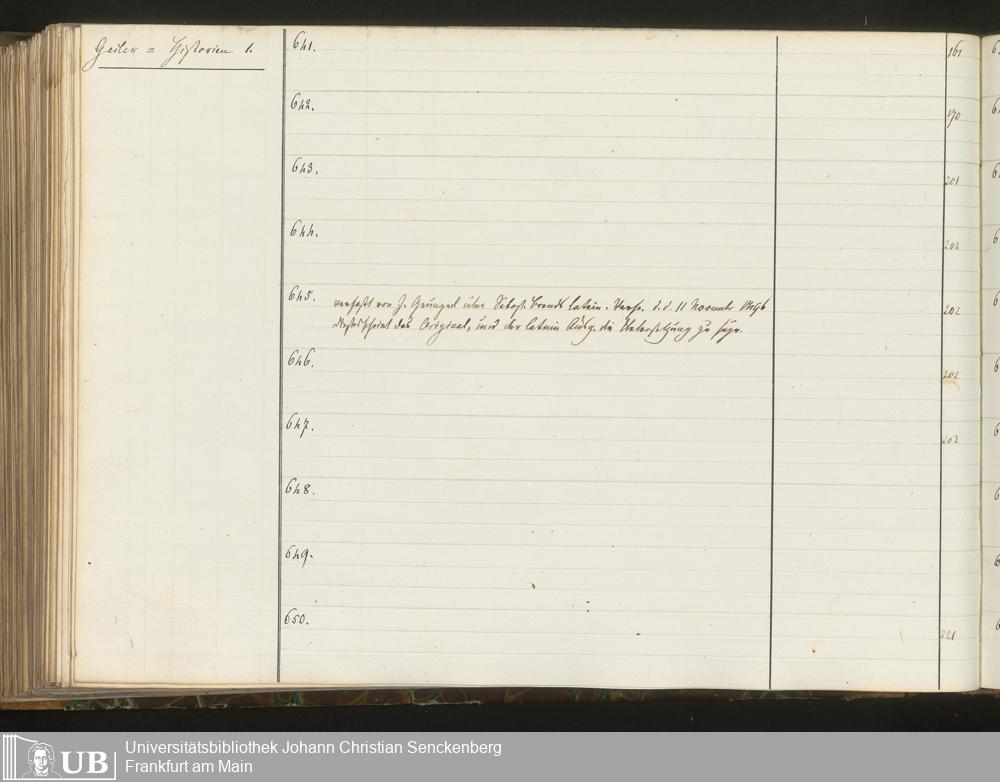 Geiler = Historien 1.
641.
161
642.
170
643.
201
644.
202
645.
verfaßt von J. Grünpeck über Sebast. Brants latein. Verse. d. d. 11 November
202
das Original, und der latein Ausg. die Übersetzung zu
646.
202
647.
202
648.
649.
650.
221
UB
Universitätsbibliothek Johann Christian Senckenberg
Frankfurt am Main